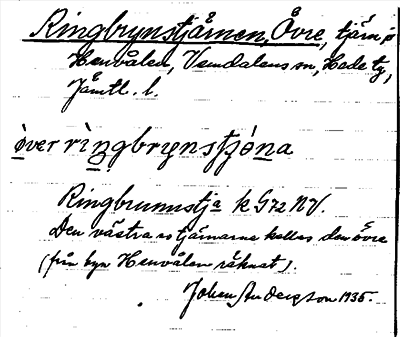 Ringbrynstjärnen, Övre, tjärn på
Henvålen, Vemdalens sn, Hede tg,
Jämtl. l.
över ringbrynstjóna
Ringbrunnstja k G72 NV.
Den västra av tjärnarne kallas den övre
(från byn Henvålen räknat).
Johan Anderson 1935.